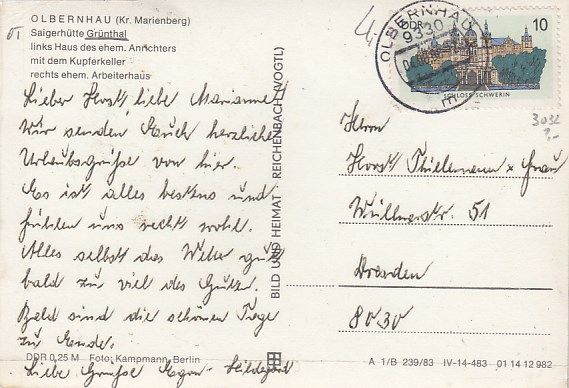 OLBERNHAU (Kr. Marienberg)
Saigerhütte Grünthal
links Haus des ehem. Anrichters
mit dem Kupferkeller
rechts ehem. Arbeiterhaus
Lieber Horst, liebe Marianne!
Wir senden Euch herzliche
Urlaubsgrüße von hier.
Es ist alles bestens und
fühlen uns recht wohl.
Alles selbst das Wetter
bald zu viel des Guten.
Bald sind die schönen Tage
zu Ende.
Liebe Grüße Egon - Hildegard
DDR 0,25 M Foto: Kampmann, Berlin
BILD UND HEIMAT REICHENBACH (VOGTL)
OLBERNHAU
9330
DDR
10
SCHLOSS SCHWERIN
Herrn
Horst Thielemann + Frau
Wüllnerstr. 51
Dresden
8030
A 1/B 239/83 IV-14-483 01 14 12 982